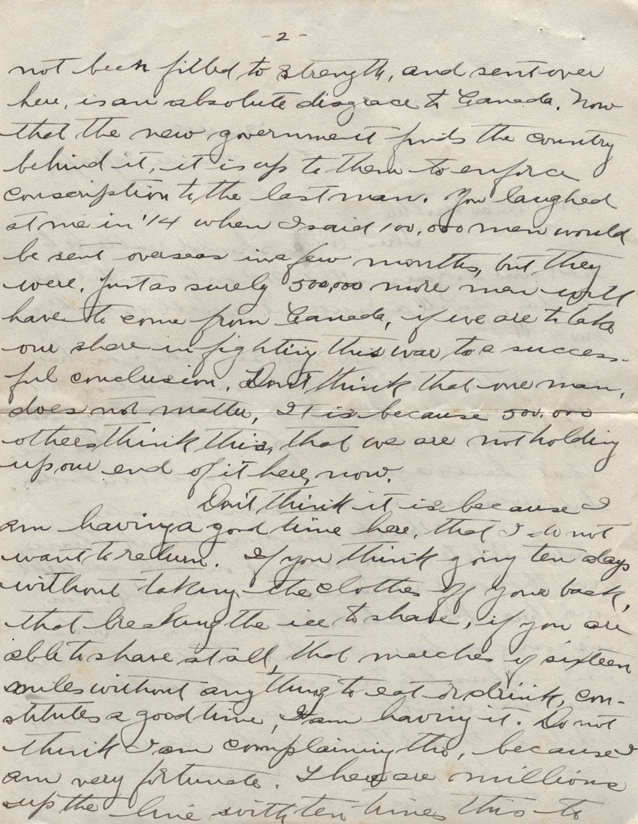 - 2 -
not been filled to strength, and sent over
here, is an absolute disgrace to Canada. Now
that the new government finds the country
behind it, it is up to them to enforce
conscription to the last man. You laughed
at me in '14 when I said 100,000 men would
be sent overseas in a few months, but they
were. Just as surely 500,000 more men will
have to come from Canada, if we are to take
our share in fighting this war to a success-
ful conclusion. Don't think that one man,
does not matter, It is because 500,000
others think this, that we are not holding
up our end of it here, now.
Don't think it is because I
am having a good time here, that I do not
want to return. If you think going ten days
without taking the clothes off your back,
that breaking the ice to shave, if you are
able to shave at all, that marches of sixteen
miles without anything to eat or drink, con-
stitutes a good time, I am having it. Do not
think I am complaining tho, because I
am very fortunate. There are millions
up the line with ten times this to